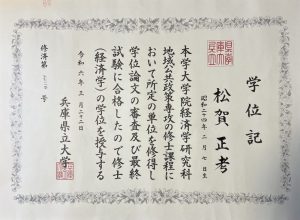 学位記
松賀正考
昭和二十四年二月七日生
本学大学院経済学研究科
地域公共政策専攻の修士課程に
おいて所定の単位を修得し
学位論文の審査及び最終
試験に合格したので修士
(経済学)の学位を授与する
令和六年三月二十二日
兵庫県立大学
修済第
号